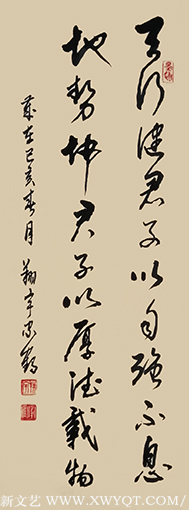 天行健君子以自强不息
地勢坤君子以厚德載物
歲在己亥春月
新文艺 WWW.XWYQT.COM